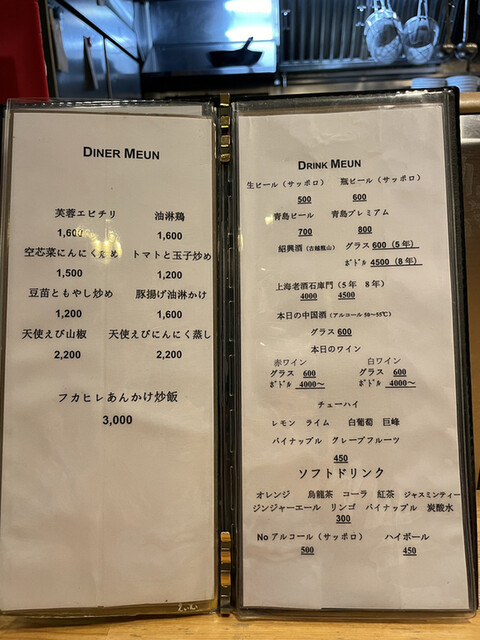 DINER MEUN
芙蓉エビチリ 油淋鶏
1,600 1,600
空芯菜にんにく炒め トマトと玉子炒め
1,500 1,200
豆苗ともやし炒め 豚揚げ油淋かけ
1,200 1,600
天使えび山椒 天使えびにんにく蒸し
2,200 2,200
フカヒレあんかけ炒飯
3,000
DRINK MEUN
生ビール（サッポロ） 瓶ビール（サッポロ）
500 600
青島ビール 青島プレミアム
700 800
紹興酒（古越龍山） グラス 600（5年）
ボドル 4500（8年）
上海老酒石庫門（5年 8年）
4000 4500
本日の中国酒（アルコール50～55℃）
グラス 600
本日のワイン
赤ワイン 白ワイン
グラス 600 グラス 600
ボドル 4000～ ボドル 4000～
チューハイ
レモン ライム 白葡萄 巨峰
パイナップル グレープフルーツ
450
ソフトドリンク
オレンジ 烏龍茶 コーラ 紅茶 ジャスミンティー
ジンジャーエール リンゴ パイナップル 炭酸水
300
No アルコール（サッポロ） ハイボール
500 450